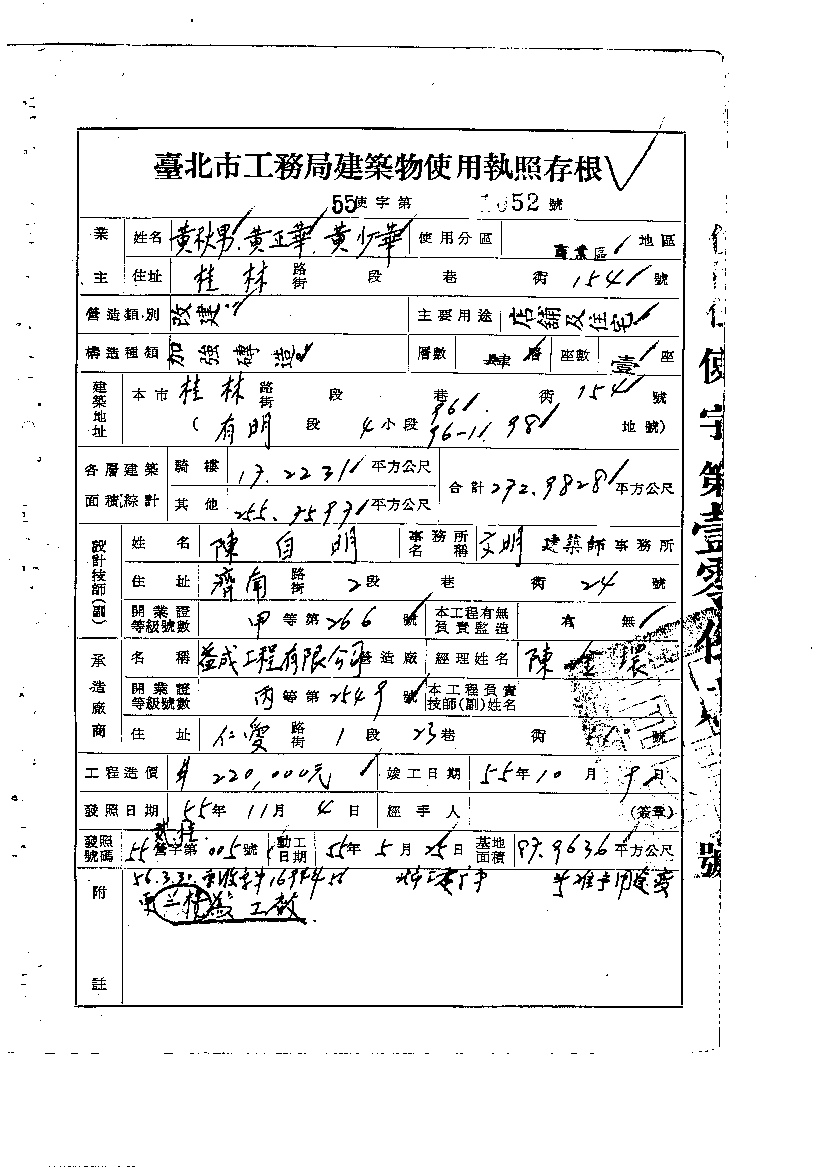 臺北市工務局建築物使用執照存根
55使字第1052號
業主 姓名 黃秋男、黃正華、黃少華 使用分區 商業區 地區
住址 桂林 路街 段 巷 街 154 號
營造類別 改建 主要用途 店舖及住宅
構造種類 加強磚造 層數 肆層 座數 壹座
建築地址 本市 桂林 路街 段 巷 街 154 號
(有明 段 4小段 96 96-11 98 地號)
各層建築面積綜計 騎樓 17.2231平方公尺 合計 272.9828平方公尺
其他 255.7597平方公尺
設計技師(副) 姓名 陳自明 事務所名稱 文明建築師事務所
住址 濟南 路街 2段 巷 街 24號
開業證等級號數 甲等第266號 本工程有無負責監造 有 無
承造廠商 名稱 益成工程有限公司營造廠 經理姓名 陳金環
開業證等級號數 丙等第2549號 本工程負責技師(副)姓名
住址 仁愛 路街 1段 23巷 街 號
工程造價 220,000元 竣工日期 55年10月9日
發照日期 55年11月4日 經手人 (簽章)
發照號碼 55營字第005號 動工日期 55年5月25日 基地面積 87.9636平方公尺
附註 56.3.31.
工廠
使字第壹零 號